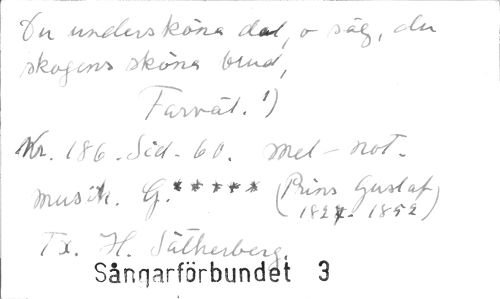 Du undersköna dal, o säg, du
skogens sköna brud,
Farväl. 1)
Nr. 186. Sid. 60. mel-not.
musik. G.***** (Prins Gustaf
1827-1852)
Tx. H. Sätherberg.
Sångarförbundet 3